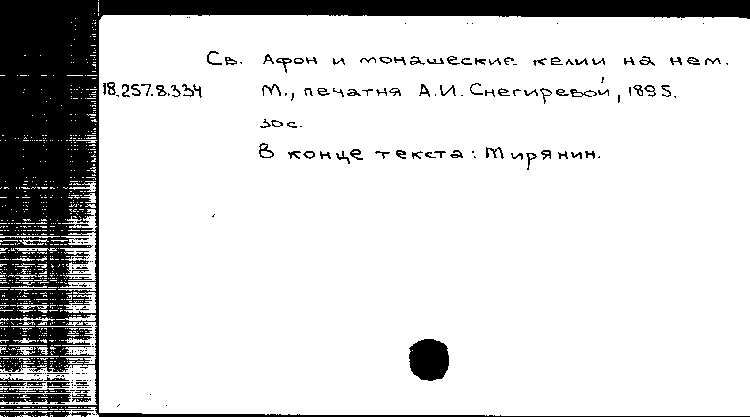 Св. Афон и монашеские келии на нем.
18.257.8.334 М., печатня А.И. Снегиревой, 1895.
30с.
В конце текста: Мирянин.